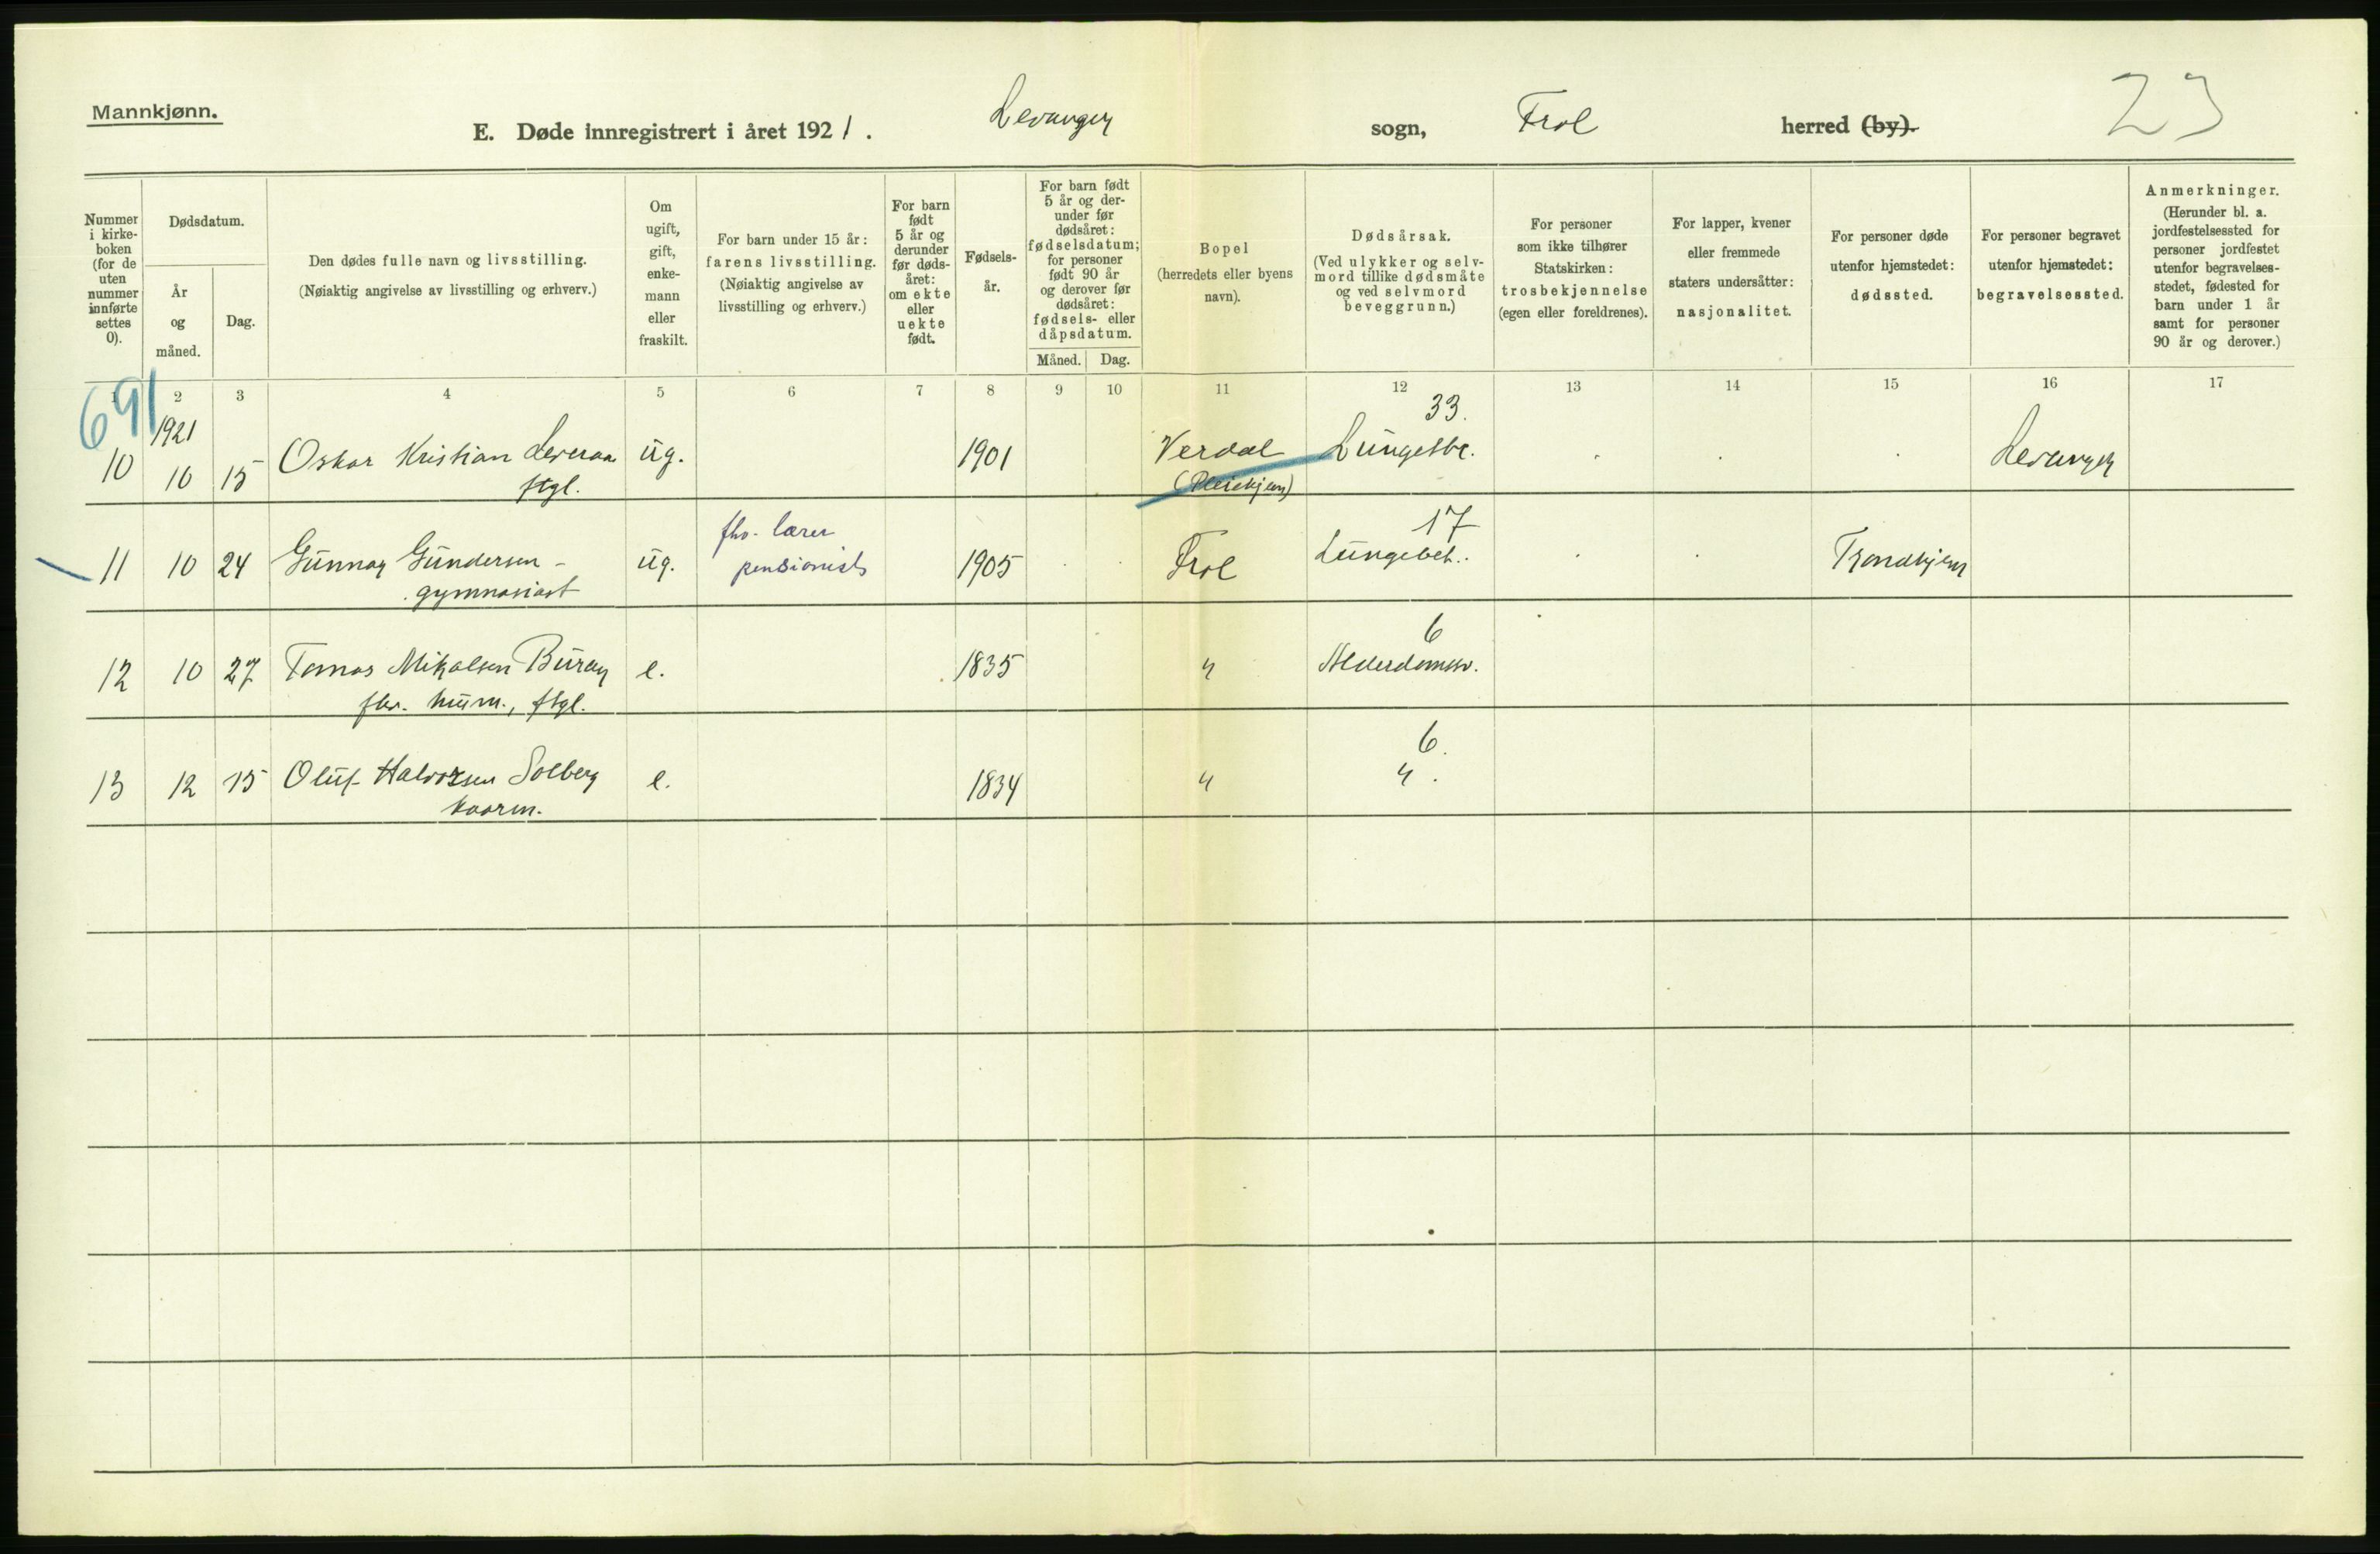 Mannkjønn.
E. Døde innregistrert i året 1921. Levanger sogn, Frol herred (by).
23
Nummer i kirke-boken (for de uten nummer innførte settes 0).
Dødsdatum.
År og måned.
Dag.
Den dødes fulle navn og livsstilling.
(Nøiaktig angivelse av livsstilling og erhverv.)
Om ugift, gift, enke-mann eller fraskilt.
For barn under 15 år:
farens livsstilling.
(Nøiaktig angivelse av livsstilling og erhverv.)
For barn født 5 år og derunder før døds-året: om ekte eller uekte født.
Fødsels-år.
For barn født 5 år og der-under før dødsåret: fødselsdatum; for personer født 90 år og derover før dødsåret: fødsels- eller dåpsdatum.
Måned. Dag.
Bopel
(herredets eller byens navn).
Dødsårsak.
(Ved ulykker og selv-mord tillike dødsmåte og ved selvmord beveggrunn.)
For personer som ikke tilhører Statskirken:
trosbekjennelse
(egen eller foreldrenes).
For lapper, kvener eller fremmede staters undersåtter:
nasjonalitet.
For personer døde utenfor hjemstedet:
dødssted.
For personer begravet utenfor hjemstedet:
begravelsessted.
Anmerkninger.
(Herunder bl. a. jordfestelsessted for personer jordfestet utenfor begravelses-stedet, fødested for barn under 1 år samt for personer 90 år og derover.)
1 2 3 4 5 6 7 8 9 10 11 12 13 14 15 16 17
691
1921
33.
10 10 15 Oskar Kristian Leveraa ug. 1901 Verdal Lungetbc. Levanger
ftgl. (Pleiehjem)
17
11 10 24 Gunnar Gundersen - ug. fhv. lærer 1905 Frol Lungebet. Trondhjem
gymnasiast pensionist
6
12 10 27 Tomas Mikalsen Buran e. 1835 " Alderdomsv.
fhv. husm., ftgl.
6.
13 12 15 Oluf Halvorsen Solberg e. 1834 " ".
kaarm.